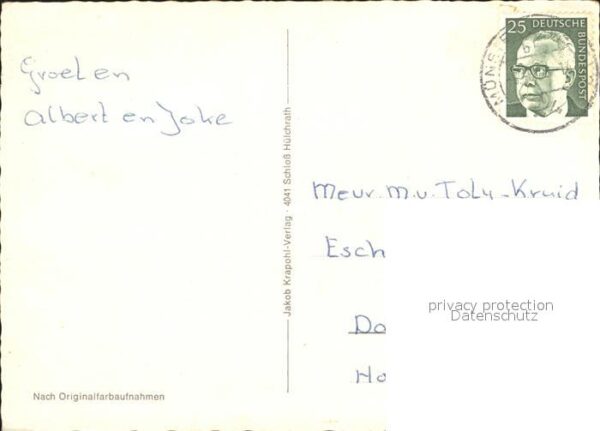 Groeten
Albert en Joke
Nach Originalfarbaufnahmen
Jakob Krapohl-Verlag · 4041 Schloß Hülchrath
25 DEUTSCHE BUNDESPOST
MÜNST
Mevr. M.v. Toly-Kruid
Esch
Do
Ho
privacy protection
Datenschutz